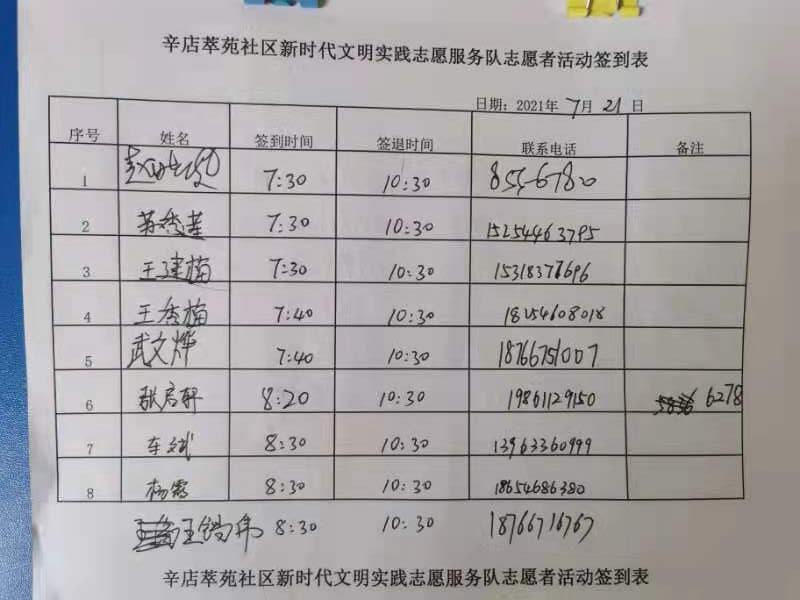 辛店萃苑社区新时代文明实践志愿服务队志愿者活动签到表
日期：2021年 7月 21 日
序号 姓名 签到时间 签退时间 联系电话 备注
1 7:30 10:30 8556780
2 苏秀莲 7:30 10:30 15254463795
3 王建楠 7:30 10:30 15318377696
4 王秀楠 7:40 10:30 18254608018
5 武文烨 7:40 10:30 18766751007
6 张启轩 8:20 10:30 19861129150 6278
7 车斌 8:30 10:30 13963360999
8 杨霞 8:30 10:30 18654686380
王锡伟 8:30 10:30 18766716767
辛店萃苑社区新时代文明实践志愿服务队志愿者活动签到表